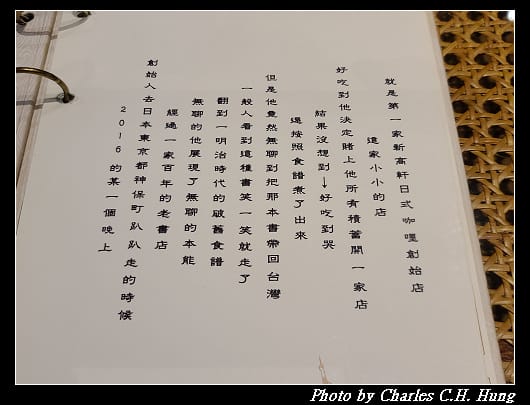 2016 的某一個晚上
創始人去日本東京都神保町趴趴走的時候
經過一家百年的老書店
無聊的他展現了無聊的本能
翻到一明治時代的破舊食譜
一般人看到這種書笑一笑就走了
但是他竟然無聊到把那本書帶回台灣
還按照食譜煮了出來
結果沒想到→好吃到哭
好吃到他決定賭上他所有積蓄開一家店
這家小小的店
就是第一家新高軒日式咖哩創始店
Photo by Charles C.H. Hung